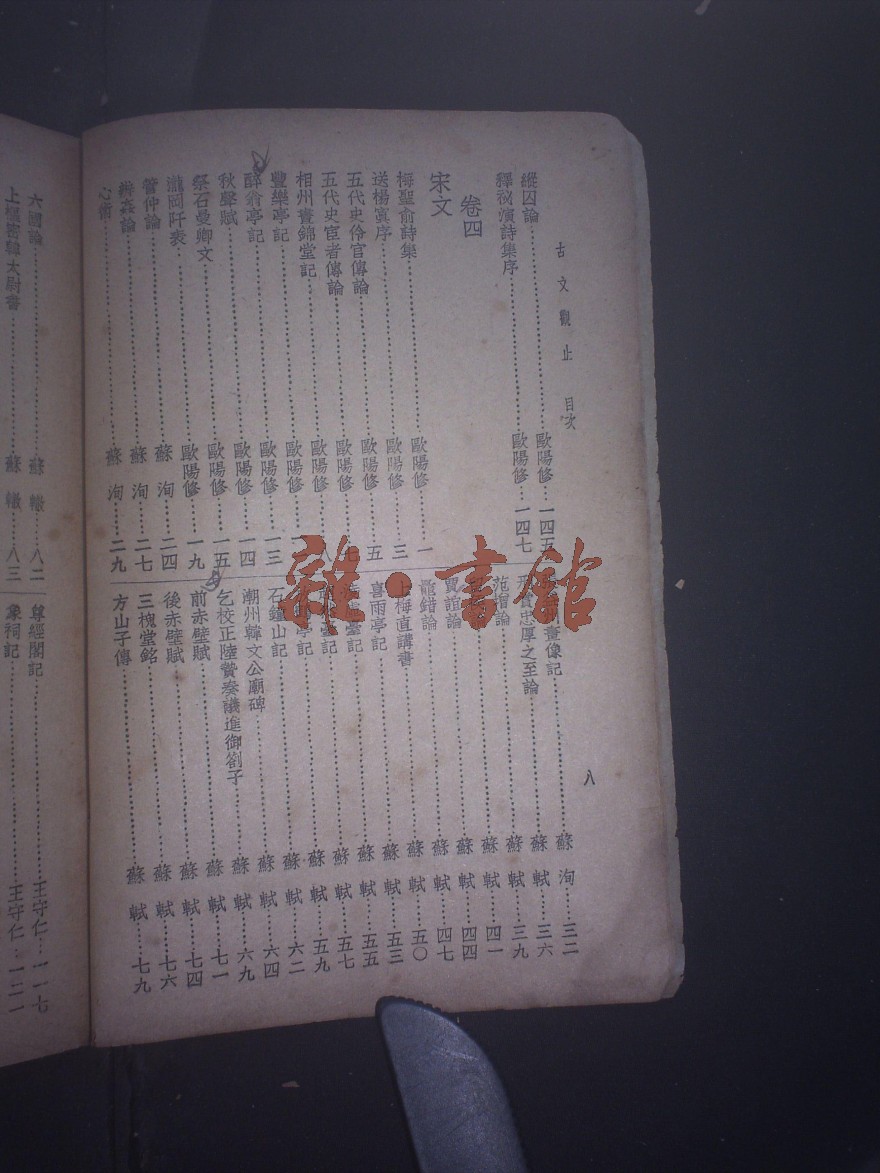 古文觀止 目次
八
縱囚論 歐陽修 一四五
釋祕演詩集序 歐陽修 一四七
卷四
宋文
梅聖俞詩集 歐陽修 一
送楊寘序 歐陽修 三
五代史伶官傳論 歐陽修 五
五代史宦者傳論 歐陽修 七
相州晝錦堂記 歐陽修 八
豐樂亭記 歐陽修 一
醉翁亭記 歐陽修 一三
秋聲賦 歐陽修 一四
祭石曼卿文 歐陽修 一五
瀧岡阡表 歐陽修 一九
管仲論 蘇洵 二四
辨姦論 蘇洵 二七
心術 蘇洵 二九
畫像記 蘇洵 三二
刑賞忠厚之至論 蘇軾 三六
范增論 蘇軾 三九
蘇軾 四一
賈誼論 蘇軾 四四
鼂錯論 蘇軾 四七
上梅直講書 蘇軾 五〇
喜雨亭記 蘇軾 五三
臺記 蘇軾 五五
臺記 蘇軾 五七
亭記 蘇軾 五九
石鐘山記 蘇軾 六二
潮州韓文公廟碑 蘇軾 六四
乞校正陸贄奏議進御劄子 蘇軾 六九
前赤壁賦 蘇軾 七一
後赤壁賦 蘇軾 七四
三槐堂銘 蘇軾 七六
方山子傳 蘇軾 七九
六國論 蘇轍 八二
上樞密韓太尉書 蘇轍 八三
尊經閣記 王守仁 一一七
象祠記 王守仁 一二一
雜·書館